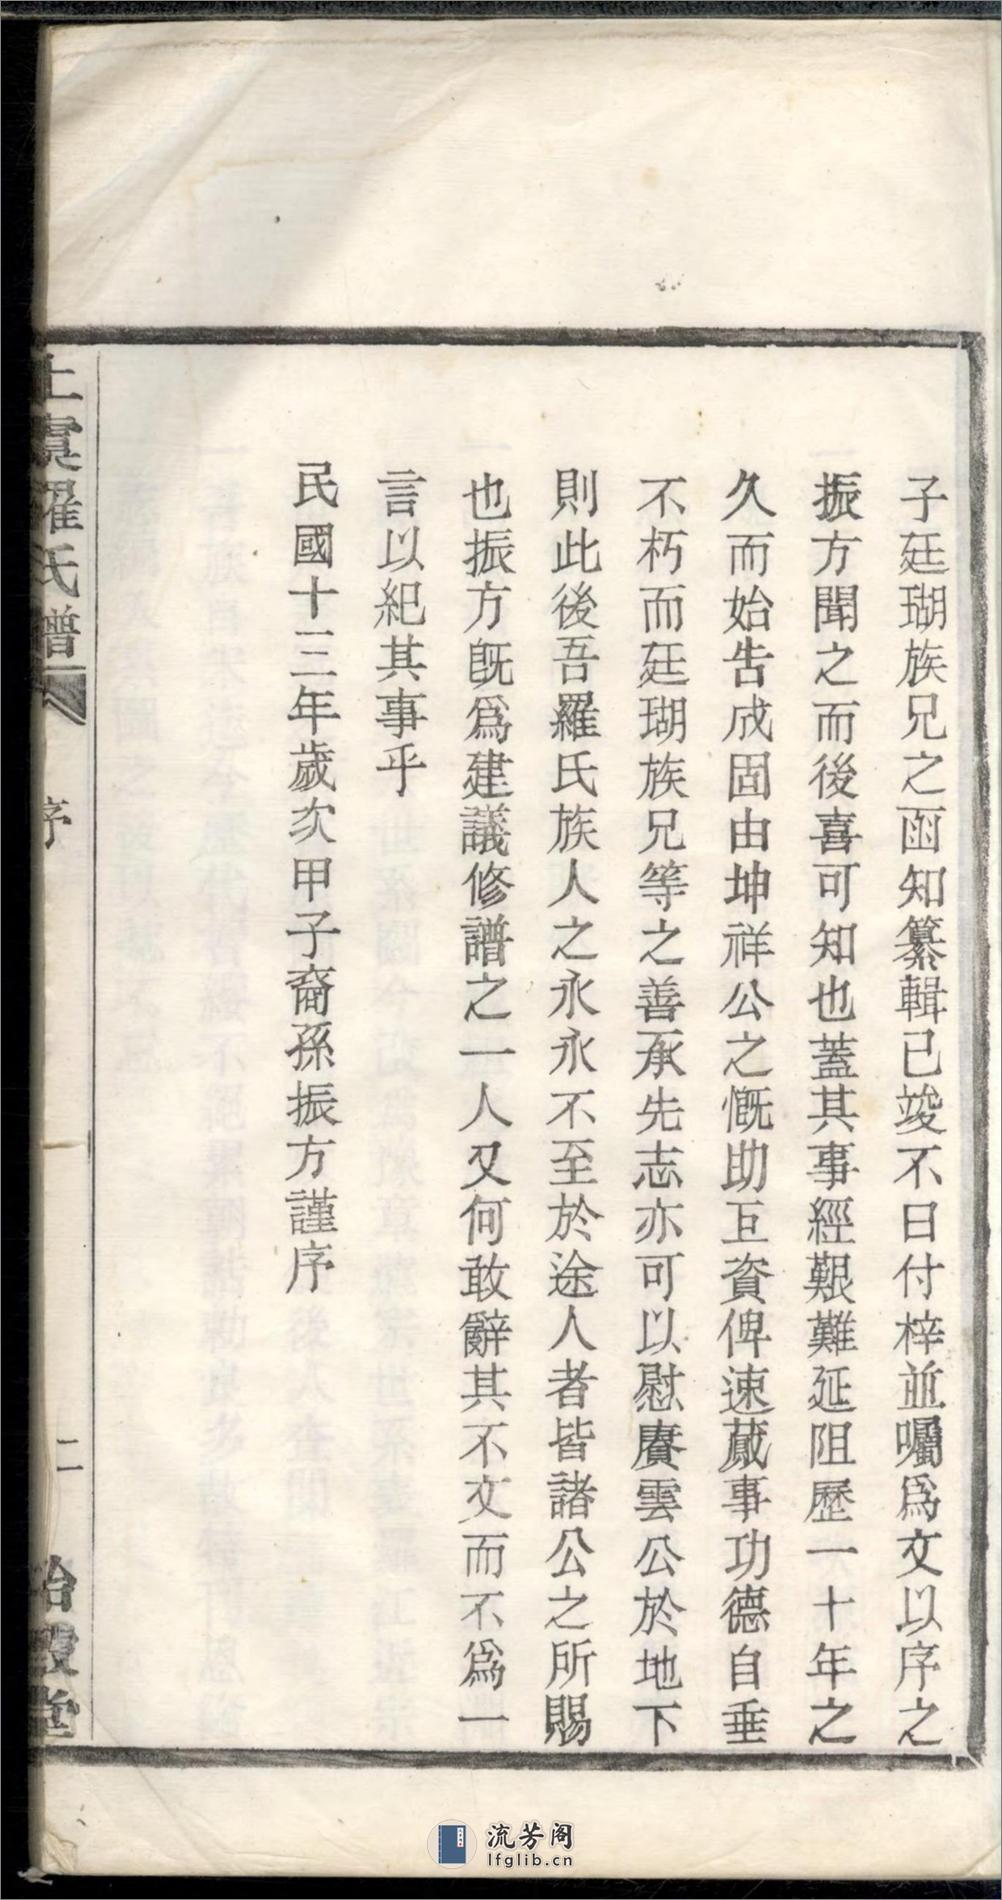 子廷瑚族兄之函知纂輯已竣不日付梓並囑爲文以序之
振方聞之而後喜可知也蓋其事經艱難延阻歷一十年之
久而始告成固由坤祥公之慨助巨資俾速蕆事功德自垂
不朽而廷瑚族兄等之善承先志亦可以慰賡雲公於地下
則此後吾羅氏族人之永永不至於途人者皆諸公之所賜
也振方既爲建議修譜之一人又何敢辭其不文而不爲一
言以紀其事乎
民國十三年歲次甲子裔孫振方謹序
上虞羅氏譜 序 二
流芳阁
lfglib.cn